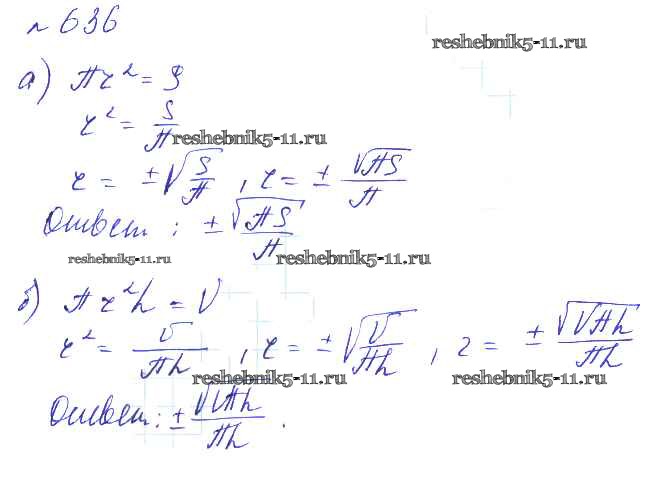 № 636
reshebnik5-11.ru
а) πr² = S
r² = S/π
reshebnik5-11.ru
r = ±√(S/π) , r = ± √(πS)/π
Ответ : ± √(πS)/π
reshebnik5-11.ru
reshebnik5-11.ru
б) πr²h = V
r² = V/(πh) , r = ±√(V/(πh)) , r = ± √(Vπh)/(πh)
reshebnik5-11.ru
reshebnik5-11.ru
Ответ: ± √(Vπh)/(πh) .